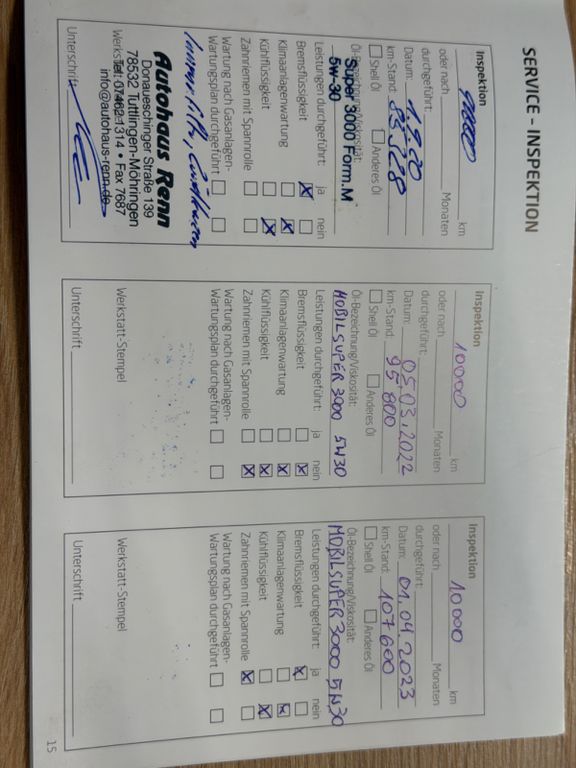 SERVICE - INSPEKTION
Inspektion
km
oder nach Monaten
durchgeführt:
Datum: 1.9.20
km-Stand: 83 528
Shell Öl Anderes Öl
Öl-Bezeichnung/Viskosität:
Super 3000 Form.M
5w-30
Leistungen durchgeführt: ja nein
Bremsflüssigkeit
Klimaanlagenwartung
Kühlflüssigkeit
Zahnriemen mit Spannrolle
Wartung nach Gasanlagen-
Wartungsplan durchgeführt
Autohaus Renn
Donaueschinger Straße 139
78532 Tuttlingen-Möhringen
Tel. 07462 1314 • Fax 7687
info@autohaus-renn.de
Unterschrift
Inspektion
10000 km
oder nach Monaten
durchgeführt:
Datum: 05.03.2022
km-Stand: 95 800
Shell Öl Anderes Öl
Öl-Bezeichnung/Viskosität:
MOBILSUPER 3000 5W30
Leistungen durchgeführt: ja nein
Bremsflüssigkeit
Klimaanlagenwartung
Kühlflüssigkeit
Zahnriemen mit Spannrolle
Wartung nach Gasanlagen-
Wartungsplan durchgeführt
Werkstatt-Stempel
Unterschrift
Inspektion
10000 km
oder nach Monaten
durchgeführt:
Datum: 01.04.2023
km-Stand: 107600
Shell Öl Anderes Öl
Öl-Bezeichnung/Viskosität:
MOBILSUPER 3000 5W30
Leistungen durchgeführt: ja nein
Bremsflüssigkeit
Klimaanlagenwartung
Kühlflüssigkeit
Zahnriemen mit Spannrolle
Wartung nach Gasanlagen-
Wartungsplan durchgeführt
Werkstatt-Stempel
Unterschrift
15